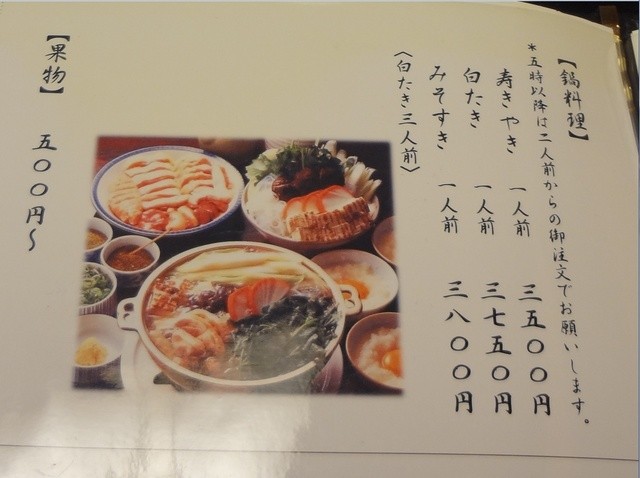 【鍋料理】
*五時以降は二人前からの御注文でお願いします。
寿きやき 一人前 三五〇〇円
白たき 一人前 三七五〇円
みそすき 一人前 三八〇〇円
〈白たき三人前〉
【果物】 五〇〇円〜